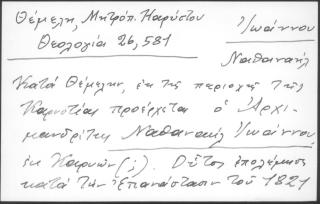 Θέμελη, Μητρόπ. Καρύστου
Θεολογία 26, 581
Ἰωάννου
Ναθαναήλ
Κατά Θέμελην, ἐκ τῆς περιοχῆς τῆς
Καρυστίας προέρχεται ὁ Ἀρχι-
μανδρίτης Ναθαναήλ Ἰωάννου,
ἐκ Καρυῶν (;). Οὗτος ἐπολέμησε
κατά τήν Ἐπανάστασιν τοῦ 1821